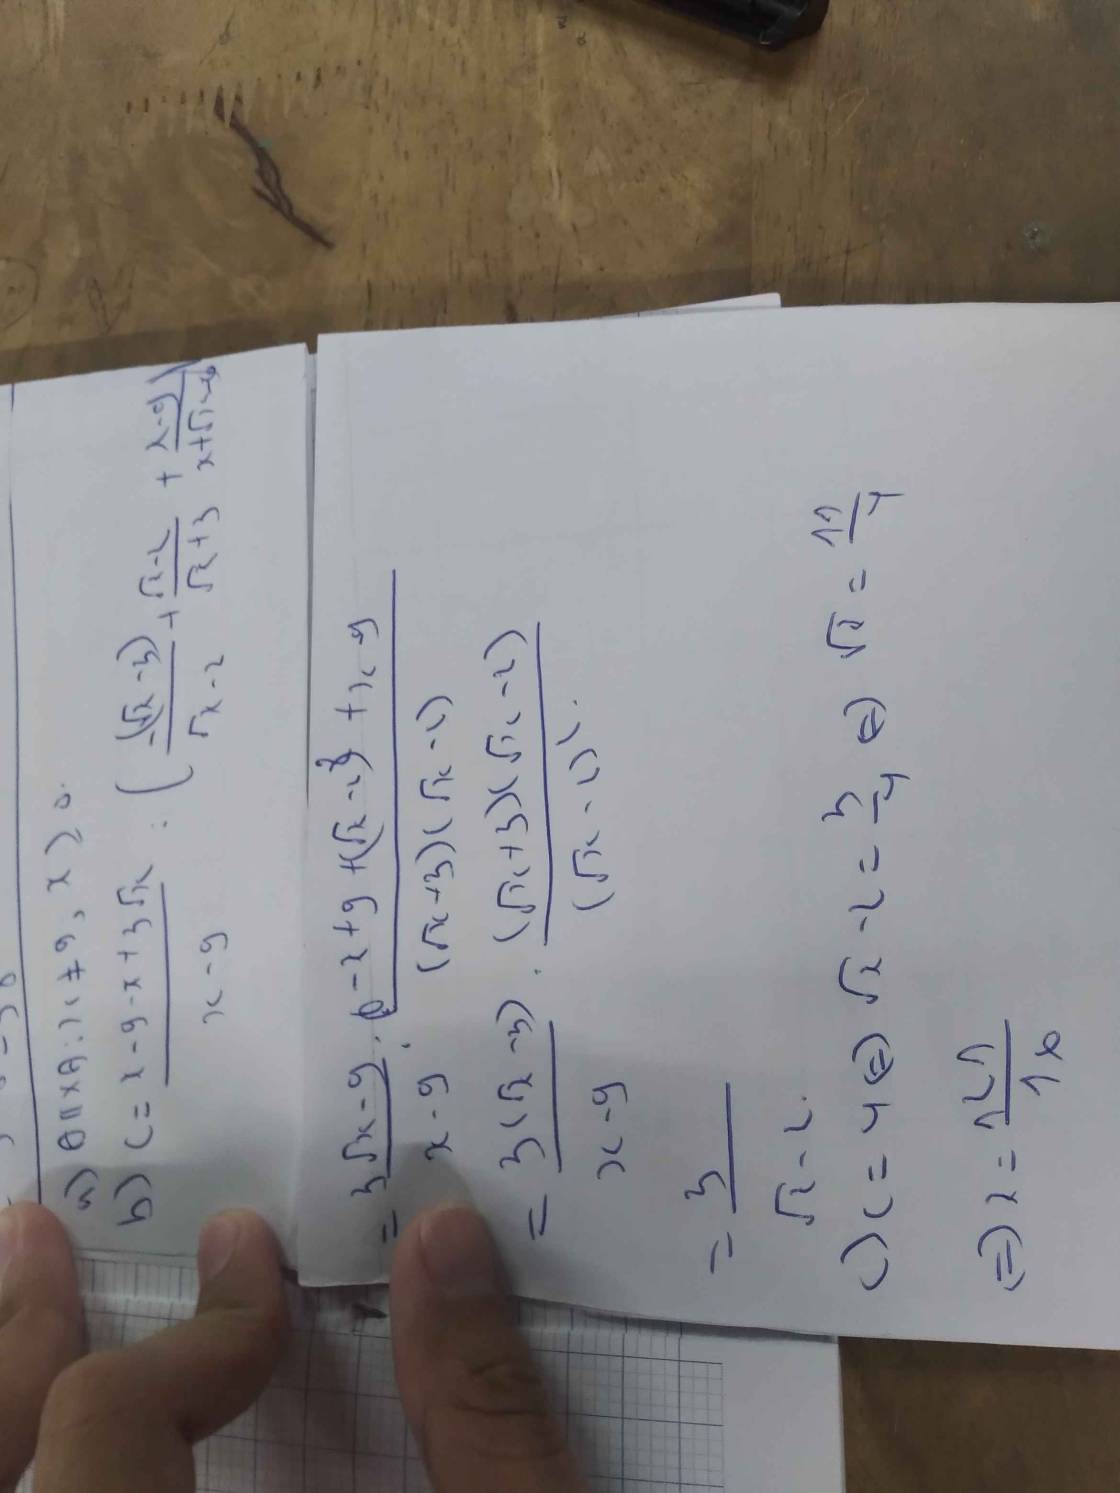 a) ĐKXĐ: x ≠ 9, x ≥ 0.
b) C = \frac{x-9-x+3\sqrt{x}}{x-9} : ( \frac{-(\sqrt{x}-3)}{\sqrt{x}-2} + \frac{\sqrt{x}-2}{\sqrt{x}+3} + \frac{x-9}{x+\sqrt{x}-6} )
= \frac{3\sqrt{x}-9}{x-9} : \frac{-x+9+(\sqrt{x}-2)^2+x-9}{(\sqrt{x}+3)(\sqrt{x}-2)}
= \frac{3(\sqrt{x}-3)}{x-9} . \frac{(\sqrt{x}+3)(\sqrt{x}-2)}{(\sqrt{x}-2)^2}
= \frac{3}{\sqrt{x}-2}
c) C = 4 ⇔ \sqrt{x}-2 = \frac{3}{4} ⇔ \sqrt{x} = \frac{11}{4}
⇔ x = \frac{121}{16}